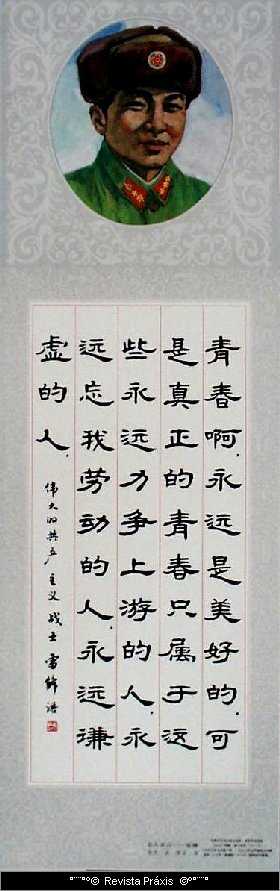 青春啊，永远是美好的，可
是真正的青春只属于这
些永远力争上游的人，永
远忘我劳动的人，永远谦
虚的人。
伟大的共产主义战士雷锋语
© Revista Práxis ©